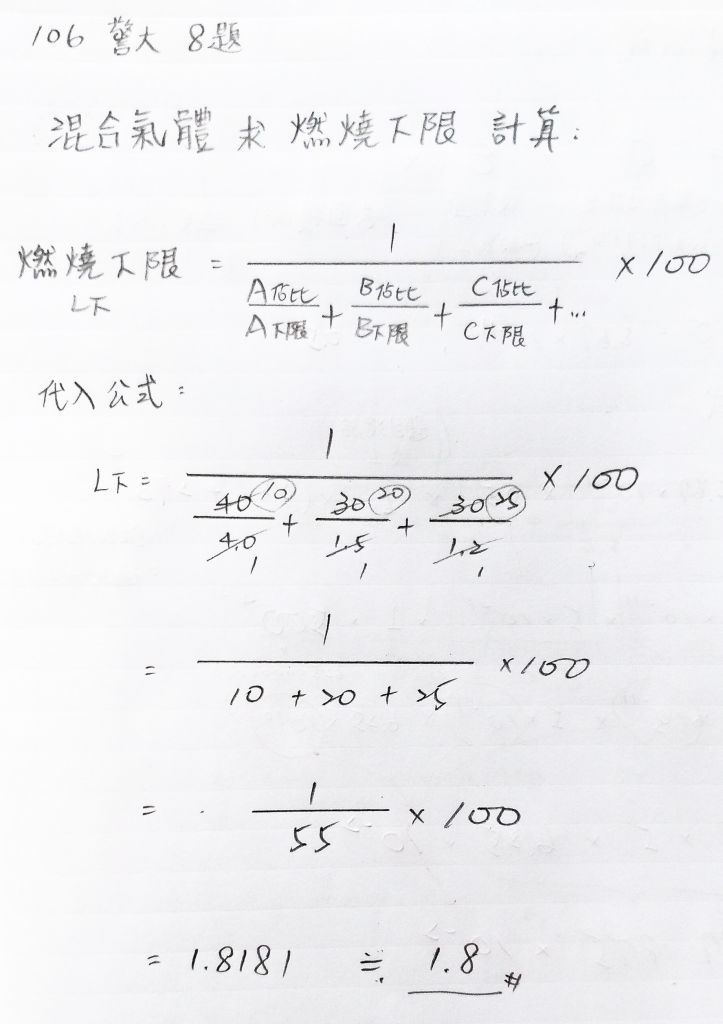 106 警大 8題
混合氣體 求 燃燒下限 計算:
燃燒下限 = 1 / (A佔比/A下限 + B佔比/B下限 + C佔比/C下限 + ...) × 100
L下
代入公式:
L下 = 1 / (40/4.0 + 30/1.5 + 30/1.2) × 100
10 20 25
1 1 1
= 1 / (10 + 20 + 25) × 100
= 1 / 55 × 100
= 1.8181 ≒ 1.8 #